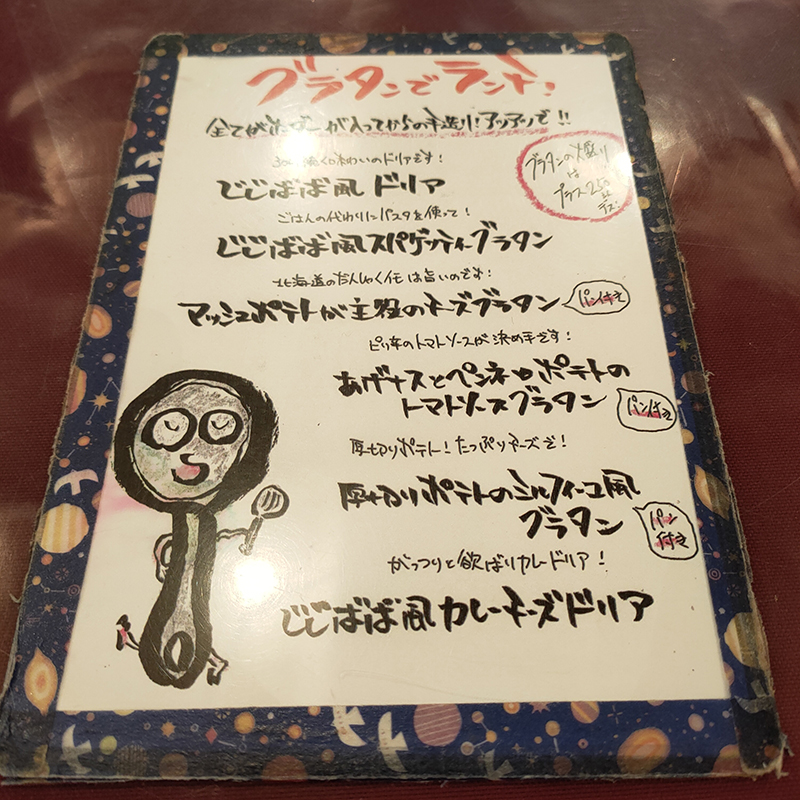 グラタンでランチ!
全てがオーダーが入ってからの手造り!アツアツで!!
グラタンの大盛り
は
プラス250
円
デス。
味わいのドリアです!
じじばば風ドリア
ごはんの代わりにパスタを使って!
じじばば風スパゲッティーグラタン
北海道のだんしゃくイモは旨いのです!
マッシュポテトが主役のチーズグラタン
パン付き
ピリ辛のトマトソースが決め手です!
あげナスとペンネとポテトの
トマトソースグラタン
パン付き
厚切りポテト!たっぷりチーズで!
厚切りポテトのミルフィーユ風
グラタン
パン
付き
がっつりと欲ばりカレードリア!
じじばば風カレーチーズドリア